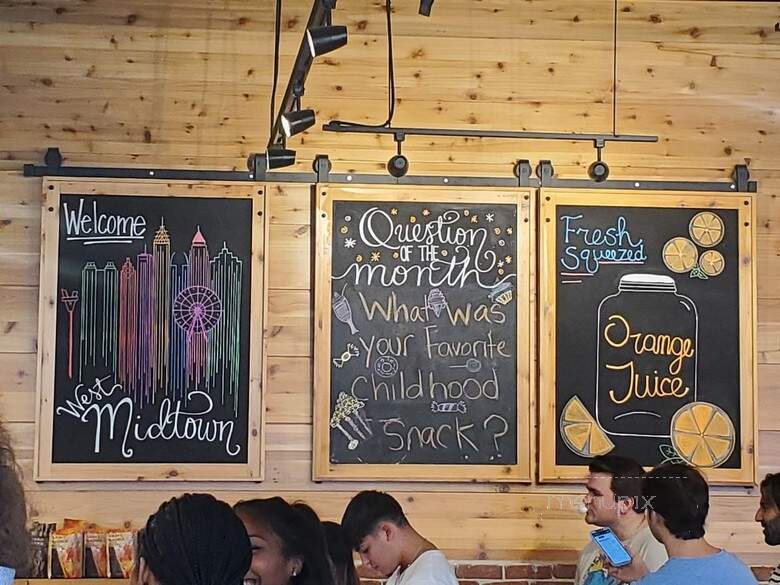 Welcome
West
Midtown
Question
OF THE
month
What was
your Favorite
childhood
Snack?
Fresh
Squeezed
Orange
Juice
menupix